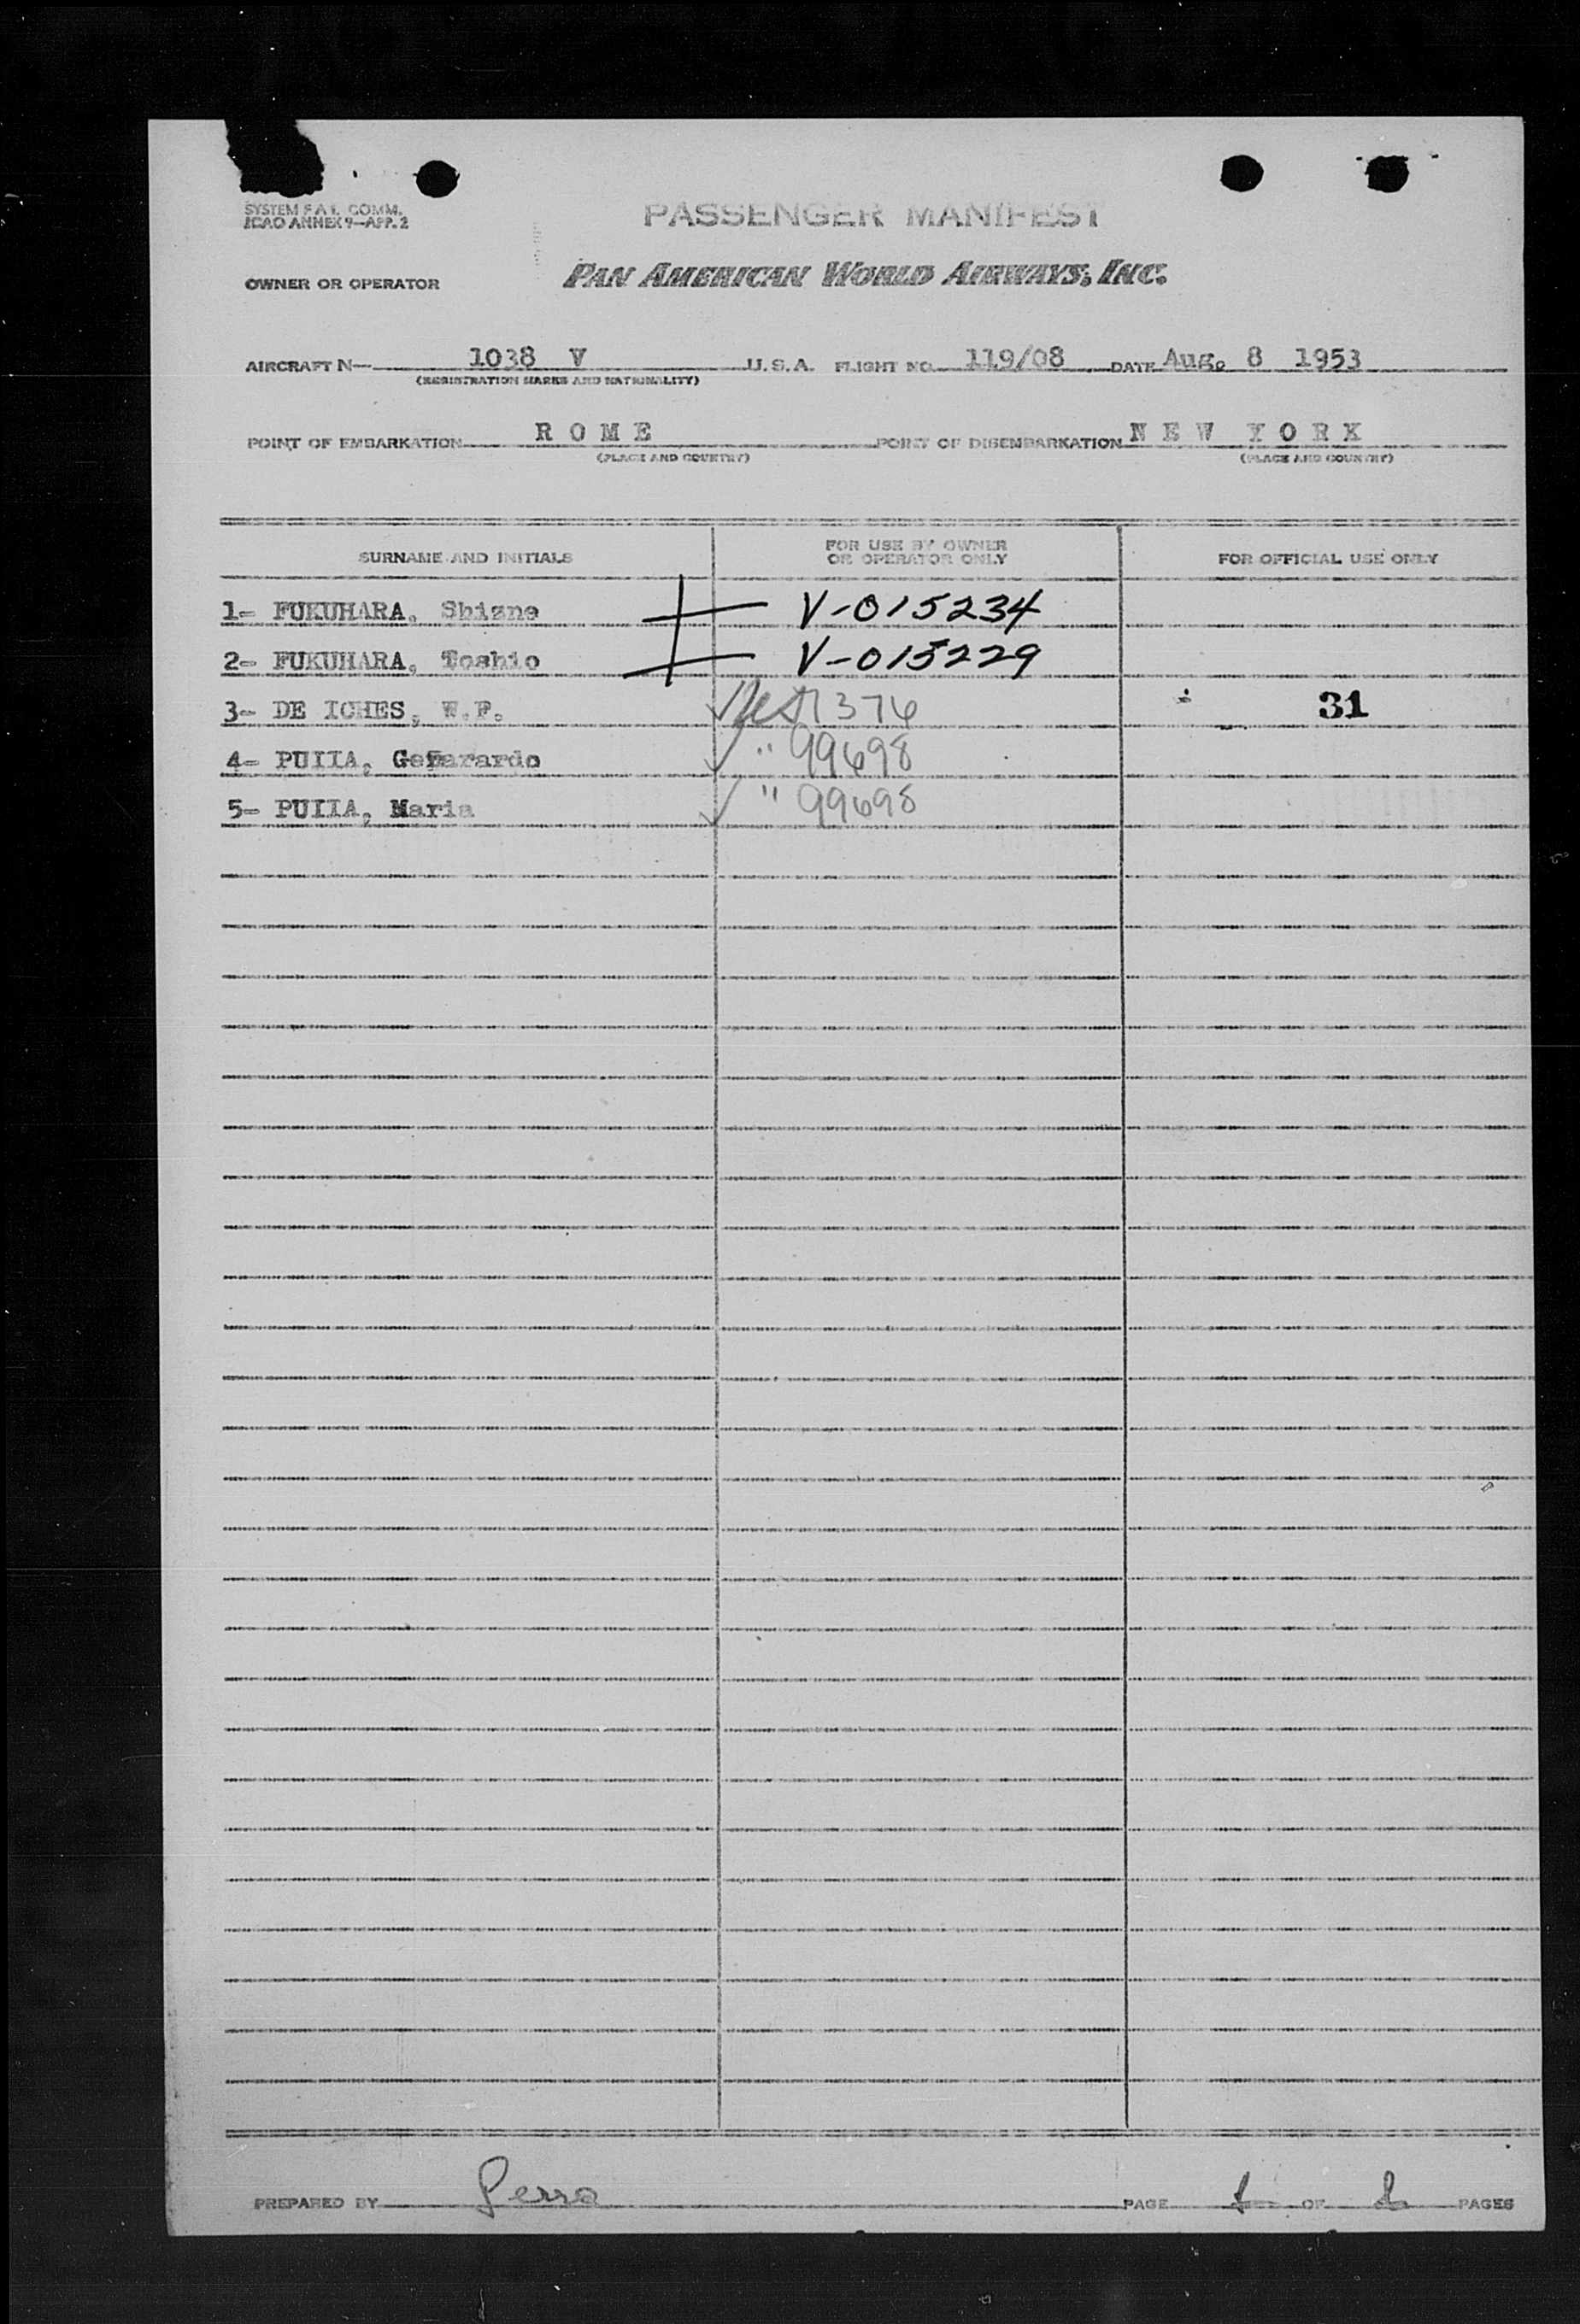 SYSTEM F.A.L. COMM.
ICAO ANNEX 9—APP. 2
PASSENGER MANIFEST
OWNER OR OPERATOR PAN AMERICAN WORLD AIRWAYS, INC.
AIRCRAFT N— 1038 V U.S.A. FLIGHT NO. 119/08 DATE Aug. 8 1953
(REGISTRATION MARKS AND NATIONALITY)
POINT OF EMBARKATION R O M E POINT OF DISEMBARKATION N E W Y O R K
(PLACE AND COUNTRY) (PLACE AND COUNTRY)
SURNAME AND INITIALS FOR USE BY OWNER OR OPERATOR ONLY FOR OFFICIAL USE ONLY
1- FUKUHARA, Shizne V-015234
2- FUKUHARA, Toshio V-015229
3- DE ICHES, W.F. 1376 31
4- PUIIA, Gerarardo " 99698
5- PUIIA, Maria " 99698
PREPARED BY PAGE 1 OF PAGES